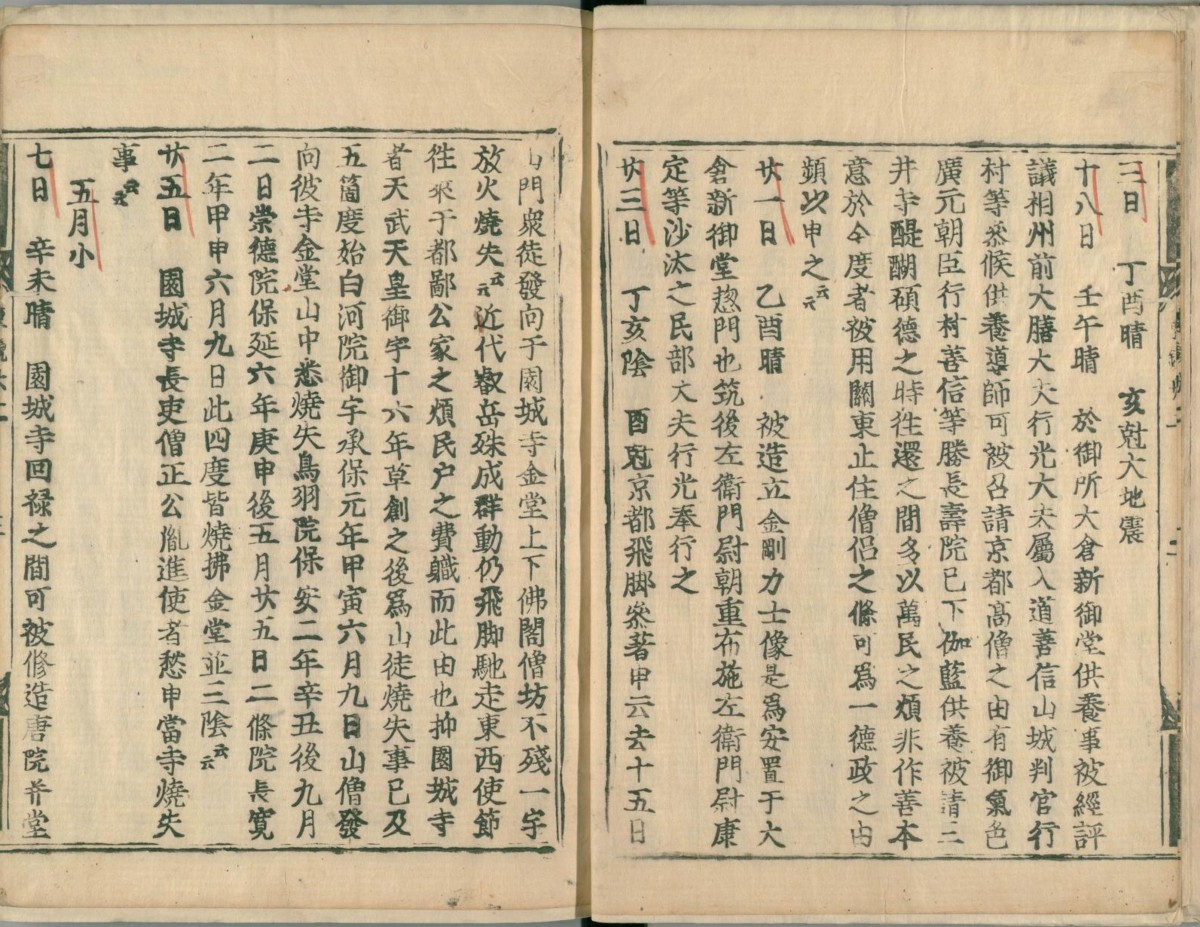 三日　丁酉晴　亥尅大地震
十八日　壬午晴　於御所大倉新御堂供養事被經評
議相州前大膳大夫行光大夫屬入道善信山城判官行
村等参候供養導師可被召請京都髙僧之由有御氣色
廣元朝臣行村善信等勝長壽院已下伽藍供養被請三
井寺醍醐碩德之時徃還之間多以萬民之煩非作善本
意於今度者被用關東止住僧侶之條可爲一德政之由
頻以申之云云
廿一日　乙酉晴　被造立金剛力士像是爲安置于大
倉新御堂惣門也筑後左衛門尉朝重布施左衛門尉康
定等沙汰之民部大夫行光奉行之
廿三日　丁亥陰　酉尅京都飛脚参著申云去十五日
山門衆徒發向于園城寺金堂上下佛閣僧坊不殘一宇
放火燒失云云近代叡岳殊成群動仍飛脚馳走東西使節
徃來于都鄙公家之煩民户之費職而此由也抑園城寺
者天武天皇御宇十六年草創之後爲山徒燒失事已及
五箇度始白河院御宇承保元年甲寅六月九日山僧發
向彼寺金堂山中悉燒失鳥羽院保安二年辛丑後九月
二日崇德院保延六年庚申後五月廿五日二條院長寛
二年甲申六月九日此四度皆燒拂金堂並三陰云云
廿五日　園城寺長吏僧正公胤進使者愁申當寺燒失
事云云
五月小
七日　辛未晴　園城寺回禄之間可被修造唐院并堂